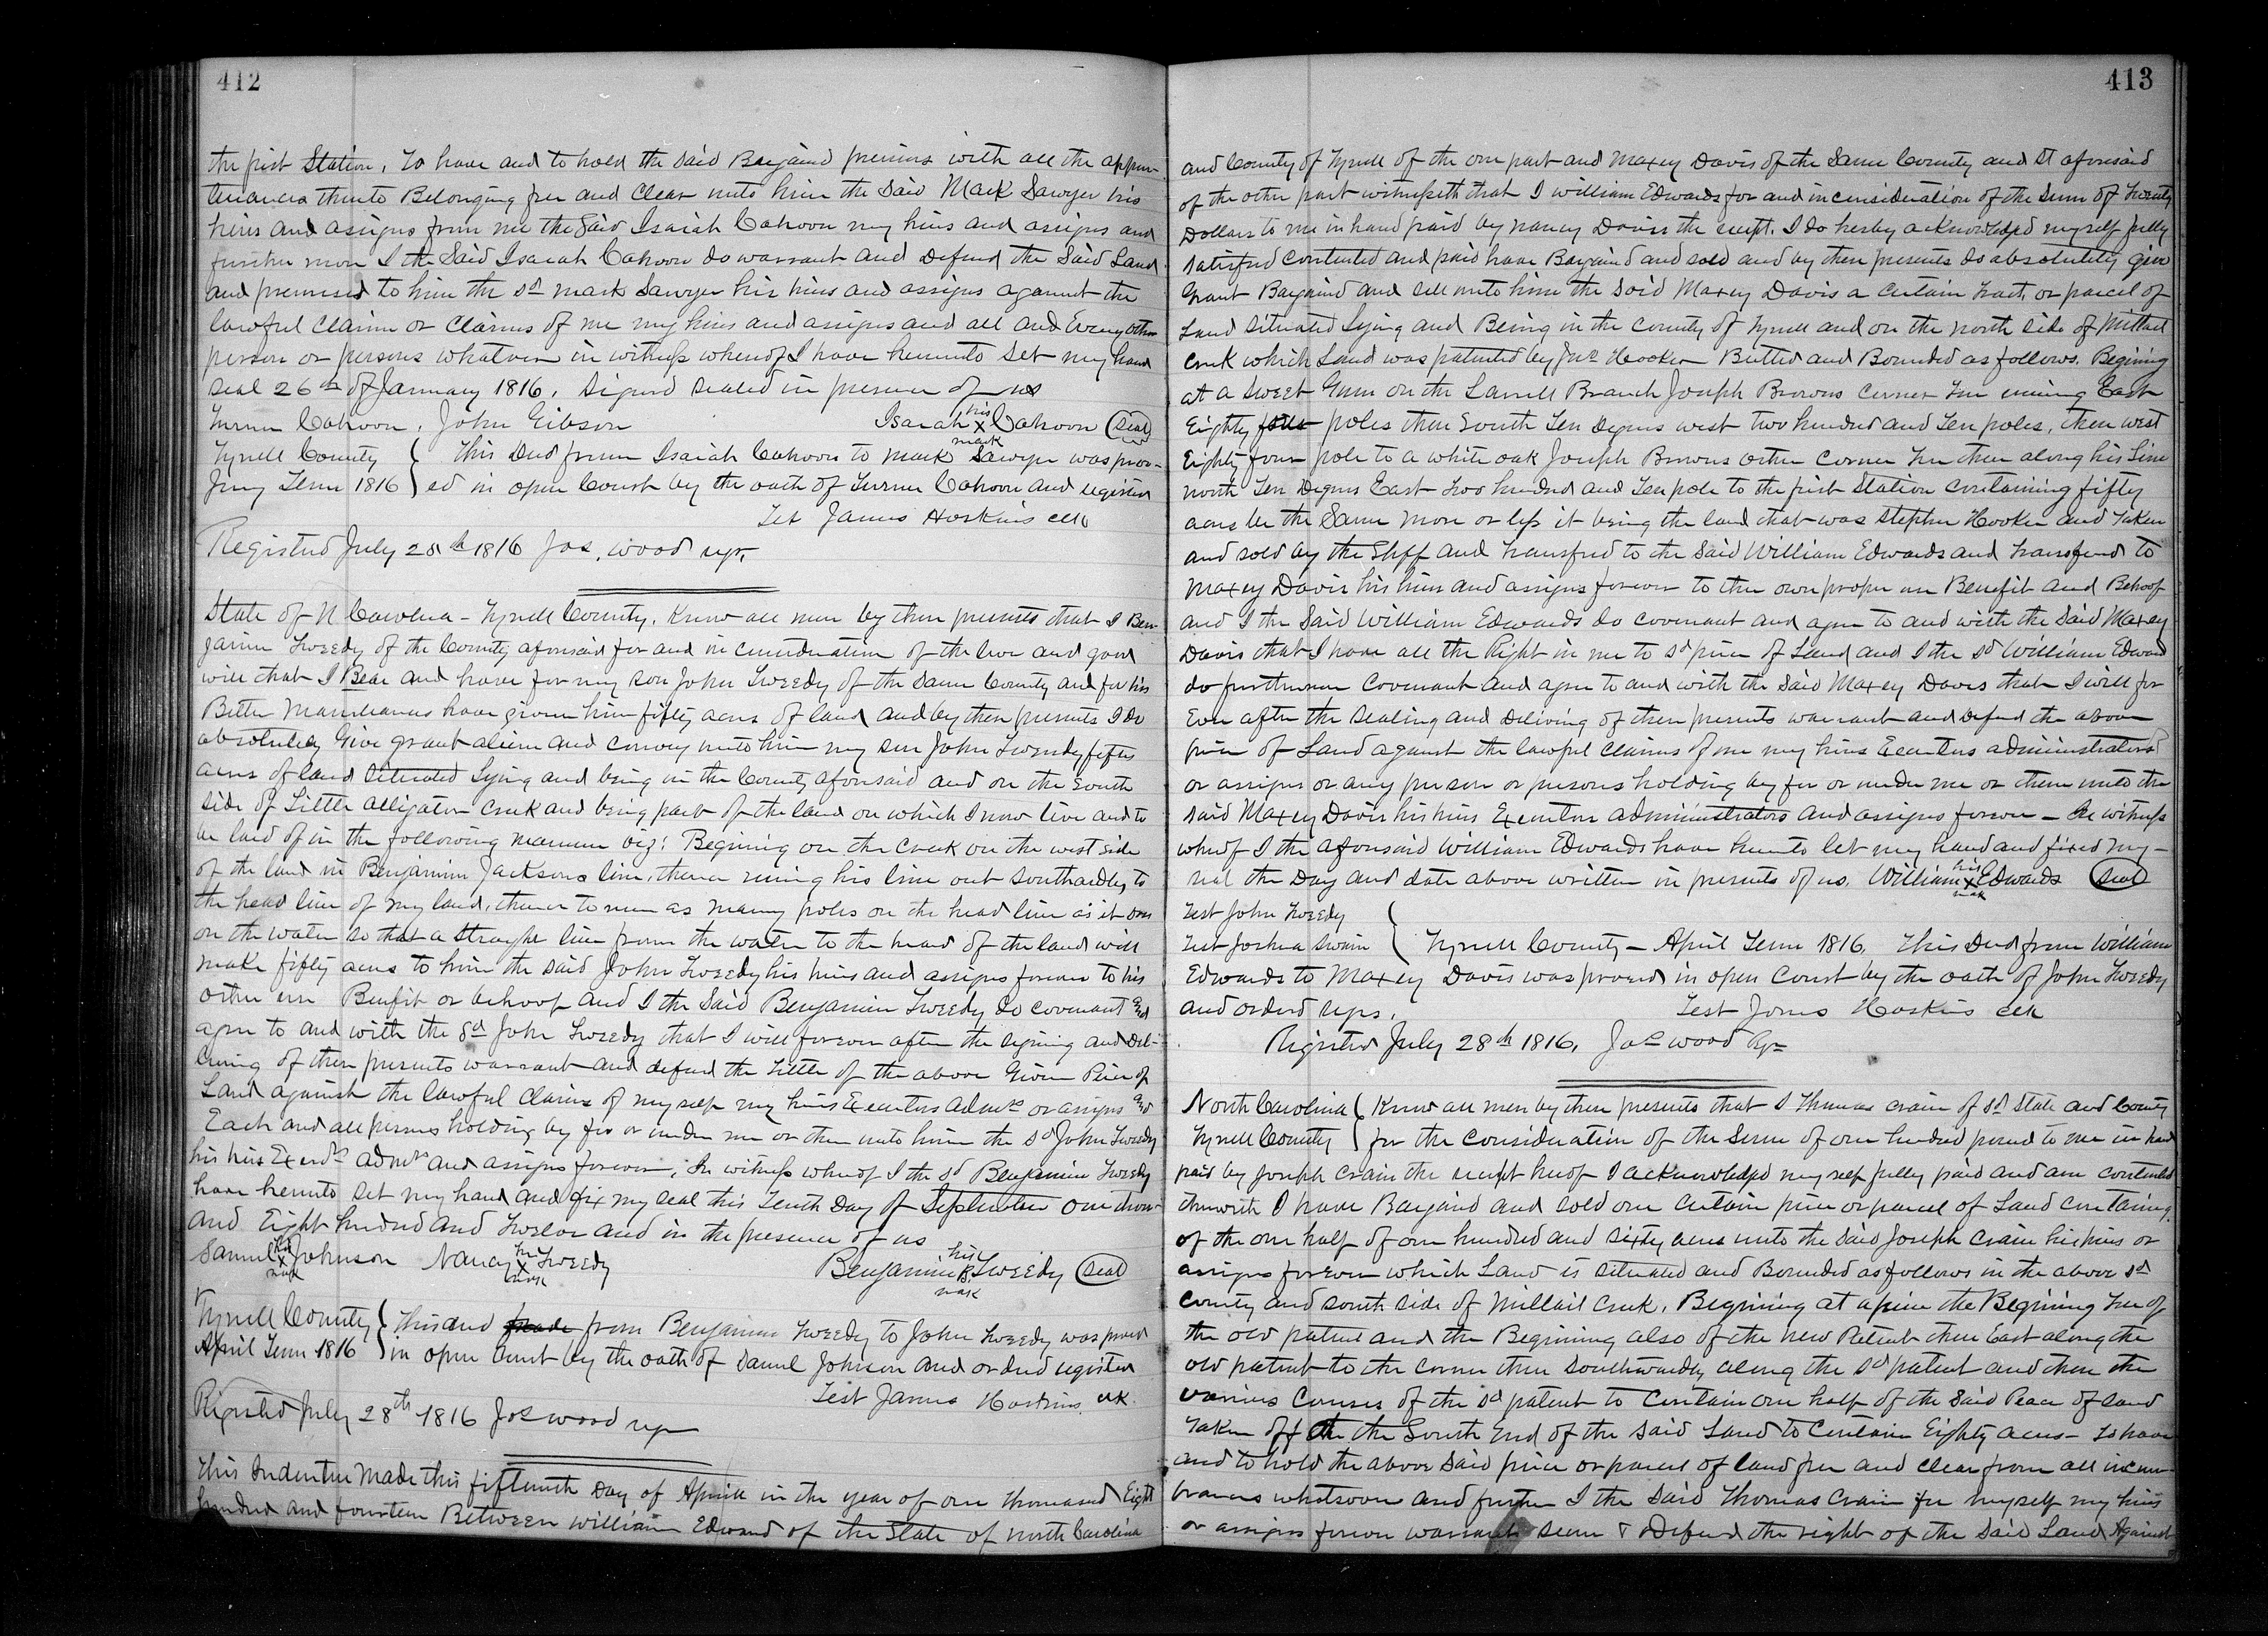 412
the first Station, To have and to hold the said Bargaind premises with all the appur-
tenances thereto Belonging free and Clear unto him the Said Mark Sawyer his
heirs and assigns from me the Said Isaiah Cahoon my heirs and assigns and
further more I the Said Isaiah Cahoon do warrant and Defend the Said Land
and premises to him the sd mark Sawyer his heirs and assigns against the
lawful Claim or Claims of me my heirs and assigns and all and Every other
person or persons whatever in witness whereof I have hereunto set my hand
seal 26th of January 1816. signed sealed in presence of us
Turner Cahoon. John Gibson Isaiah his X mark Cahoon (Seal)
Tyrrell County { This Deed from Isaiah Cahoon to Mark Sawyer was prov-
Term 1816 } ed in open Court by the oath of Turner Cahoon and register
Test James Hoskins clk
Registred July 28th 1816 Jos. Wood regr.
State of N Carolina - Tyrrell County. Know all men by these presents that I Ben-
jamin Tweedy of the County aforesaid for and in consideration of the love and good
will that I Bear and have for my son John Tweedy of the Same County and for his
Better Maintenance have given him fifty acres of land and by these presents I do
absolutely Give grant alien and convey unto him my son John Tweedy fifty
acres of land situated Lying and being in the County aforesaid and on the South
side of Little alligator Creek and being part of the land on which I now live and to
be laid of in the following manner viz: Begining on the Creek on the west side
of the land in Benjamin Jacksons line, thence runing his line out southardly to
the head line of my land, thence to run as many poles on the head line as it does
on the water so that a straight line from the water to the head of the land will
make fifty acres to him the said John Tweedy his heirs and assigns forever to his
other use Benefit or behoof and I the Said Benjamin Tweedy do covenant and
agree to and with the sd John Tweedy that I will forever after the signing and Del-
ivering of these presents warrant and defend the Tittle of the above Given Piece of
Land against the lawful Claims of myself my heirs Executors admrs or assigns and
Each and all persons holding by for or under me or them unto him the sd John Tweedy
his heirs Exerds admrs and assigns forever, In witness whereof I the sd Benjamin Tweedy
have hereunto set my hand and fix my seal this Tenth Day of September one thou-
and Eight hundred and Twelve and in the presence of us
Samuel his X mark Johnson Nancy her X mark Tweedy Benjamin his B mark Tweedy (Seal)
Tyrrell County { This deed from Benjamin Tweedy to John Tweedy was proved
April Term 1816 } in open Court by the oath of Samuel Johnson and ordered register
Test James Hoskins clk
Registed July 28th 1816 Jos Wood regr
This Indenture Made this fifteenth Day of Aprill in the year of our thousand Eight
hundred and fourteen Between William Edward of the State of north Carolina
413
and County of Tyrrell of the one part and Maxey Davis of the Same County and St aforesaid
of the other part witnesseth that I William Edwards for and in consideration of the Sum of Twenty
Dollars to me in hand paid by nancy Davis the recept. I do herby acknowledged myself fully
satisfied contented and paid have Bargaind and sold and by these presents do absolutely give
Grant Bargaind and sell unto him the Said Maxey Davis a Certain tract or parcel of
Land situated Lying and Being in the County of Tyrrell and on the north side of Milltail
Creek which Land was patented by Jno Hooker Butted and Bounded as follows. Begining
at a Sweet Gum on the Laurell Branch Joseph Browns Corner Tree runing East
Eighty four poles then South Ten Degrees west two hundred and Ten poles, then west
Eighty four pole to a white oak Joseph Browns other Corner Tree then along his Line
north Ten Degrees East two hundred and Ten pole to the first Station containing fifty
acres be the Same more or less it being the land that was Stephen Hooker and Taken
and sold by the Shff and transfred to the said William Edwards and Transferd to
Maxey Davis his heirs and assigns forever to their own proper use Benefit and Behoof
and I the Said William Edwards do covenant and agree to and with the Said Maxey
Davis that I have all the Right in me to sd piece of Land and I the sd William Edward
do furthermore Covenant and agree to and with the Said Maxey Davis that I will for
Ever after the Sealing and Deliving of these presents warrant and Defend the above
piece of Land against the lawful claims of me my heirs Executors administrators
or assigns or any person or persons holding by for or under me or them unto the
said Maxey Davis his heirs Executors administrators and assigns forever - In witness
whereof I the aforesaid William Edwards have hereunto let my hand and fixed my-
seal the Day and date above written in presents of us. William his X mark Edwards (Seal)
Test John Tweedy
Test Joshua Swain { Tyrrell County - April Term 1816. This Deed from William
Edwards to Maxey Davis was proved in open Court by the oath of John Tweedy
and orderd regs. Test James Hoskins clk
Registed July 28th 1816. Jos Wood Regr
North Carolina { Know all men by these presents that I Thomas Crain of sd State and County
Tyrrell County { for the Consideration of the Sum of one hundred pound to me in hand
paid by Joseph Crain the receipt hereof I acknowledged my self fully paid and am contented
therewith I have Bargaind and sold one Certain piece or parcel of Land Containing
of the one half of one hundred and sixty acres unto the Said Joseph Crain his heirs or
assigns forever which Land is situated and Bounded as follows in the above sd
County and South side of Milltail Creek, Begining at a pine the Begining Tree of
the old patent and the Begining also of the new Patent then East along the
old patent to the corner then Southwardly along the sd patent and then the
various Courses of the sd patent to Contain one half of the Said Peace of land
Taken off the South End of the said Land to Contain Eighty acres - To have
and to hold the above Said piece or parcel of land free and clear from all incum-
brances whatsoever and further I the Said Thomas Crain for myself my heirs
or assigns forever warrant secure & Defend the right of the Said Land Against